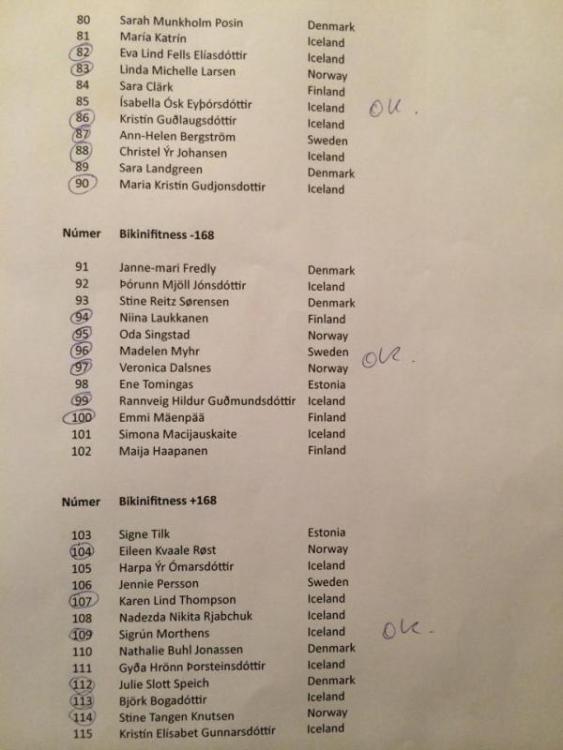 80 Sarah Munkholm Posin Denmark
81 María Katrín Iceland
82 Eva Lind Fells Elíasdóttir Iceland
83 Linda Michelle Larsen Norway
84 Sara Clärk Finland
85 Ísabella Ósk Eyþórsdóttir Iceland OK.
86 Kristín Guðlaugsdóttir Iceland
87 Ann-Helen Bergström Sweden
88 Christel Ýr Johansen Iceland
89 Sara Landgreen Denmark
90 Maria Kristín Gudjonsdottir Iceland
Númer Bikinifitness -168
91 Janne-mari Fredly Denmark
92 Þórunn Mjöll Jónsdóttir Iceland
93 Stine Reitz Sørensen Denmark
94 Niina Laukkanen Finland
95 Oda Singstad Norway
96 Madelen Myhr Sweden OK.
97 Veronica Dalsnes Norway
98 Ene Tomingas Estonia
99 Rannveig Hildur Guðmundsdóttir Iceland
100 Emmi Mäenpää Finland
101 Simona Macijauskaite Iceland
102 Maija Haapanen Finland
Númer Bikinifitness +168
103 Signe Tilk Estonia
104 Eileen Kvaale Røst Norway
105 Harpa Ýr Ómarsdóttir Iceland
106 Jennie Persson Sweden
107 Karen Lind Thompson Iceland
108 Nadezda Nikita Rjabchuk Iceland
109 Sigrún Morthens Iceland OK.
110 Nathalie Buhl Jonassen Denmark
111 Gyða Hrönn Þorsteinsdóttir Iceland
112 Julie Slott Speich Denmark
113 Björk Bogadóttir Iceland
114 Stine Tangen Knutsen Norway
115 Kristín Elísabet Gunnarsdóttir Iceland